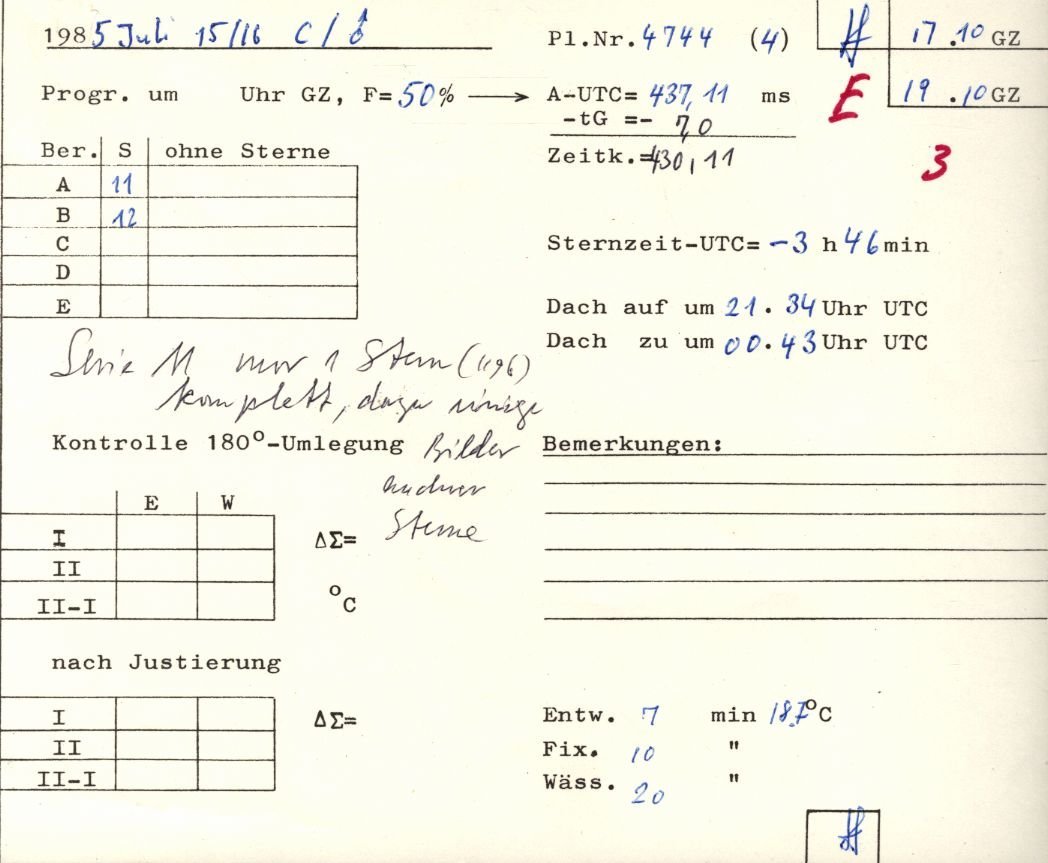 1985 Juli 15/16 C/♂ Pl.Nr. 4744 (4) 17.10 GZ
Progr. um Uhr GZ, F=50% → A-UTC= 437,11 ms E 19.10 GZ
-tG =- 7,0
Ber. S ohne Sterne Zeitk.=430,11 3
A 11
B 12
C Sternzeit-UTC= -3 h 46 min
D
E Dach auf um 21.34 Uhr UTC
Dach zu um 00.43 Uhr UTC
Serie 11 nur 1 Stern (1196)
komplett, dazu einige
Kontrolle 180°-Umlegung Bilder Bemerkungen:
anderer
E W
Sterne
I ΔΣ=
II
II-I °C
nach Justierung
I ΔΣ= Entw. 7 min °C
II Fix. 10 "
II-I Wäss. 20 "